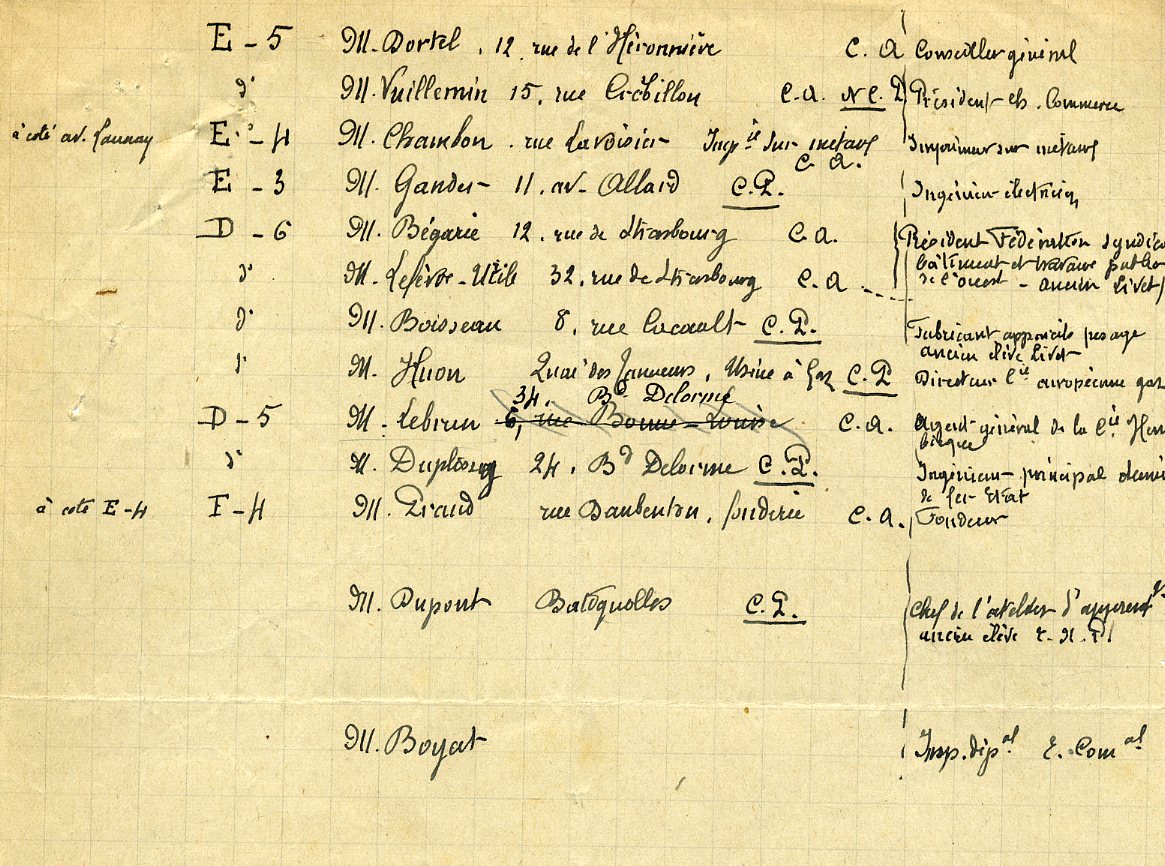 E - 5 M. Dortel, 12, rue de l'Héronnière C. A Conseiller général
d° M. Vuillemin 15, rue Crébillon C.A. N C. P Président Ch. Commerce
à coté av. Launay E - 4 M. Chambon, rue Lavoisier Imp ie sur métaux C. A. Imprimeur sur métaux
E - 3 M. Gander 11, av. Allard C.P. Ingénieur électriciq
D - 6 M. Bégarie 12, rue de Strasbourg C.A. Président Fédération syndica
bâtiment et travaux public
de l'ouest - ancien Livet
d° M. Lefèvre-Utile 32, rue de Strasbourg C. A
d° M. Boisseau 8, rue Cacault C.P. Fabricant appareils pesage
ancien élève Livet
d° M. Huon Quai des Tanneurs, Usine à Gaz C.P Directeur Cie européenne gaz
34, Bd Delorme
D - 5 M. Lebrun 6, rue Bonne-Louise C.A. Agent général de la Cie Hen
bique
d° M. Duplessy 24, Bd Delorme C.P. Ingénieur principal
de fer Etat
à coté E-4 F-4 M. Piraud rue Daubenton, fonderie C.A. Fondeur
M. Dupont Batignolles C.P. Chef de l'atelier d'apprent ge
ancien élève
M. Boyat Insp. dép al E. Com al